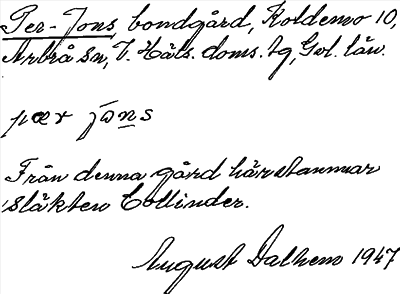 Per-Jons, bondgård, Koldemo 10,
Arbrå sn, V. Häls. doms. tg, Gvl. län.
pær jōns
Från denna gård härstammar
släkten Collinder.
August Dalhem 1947